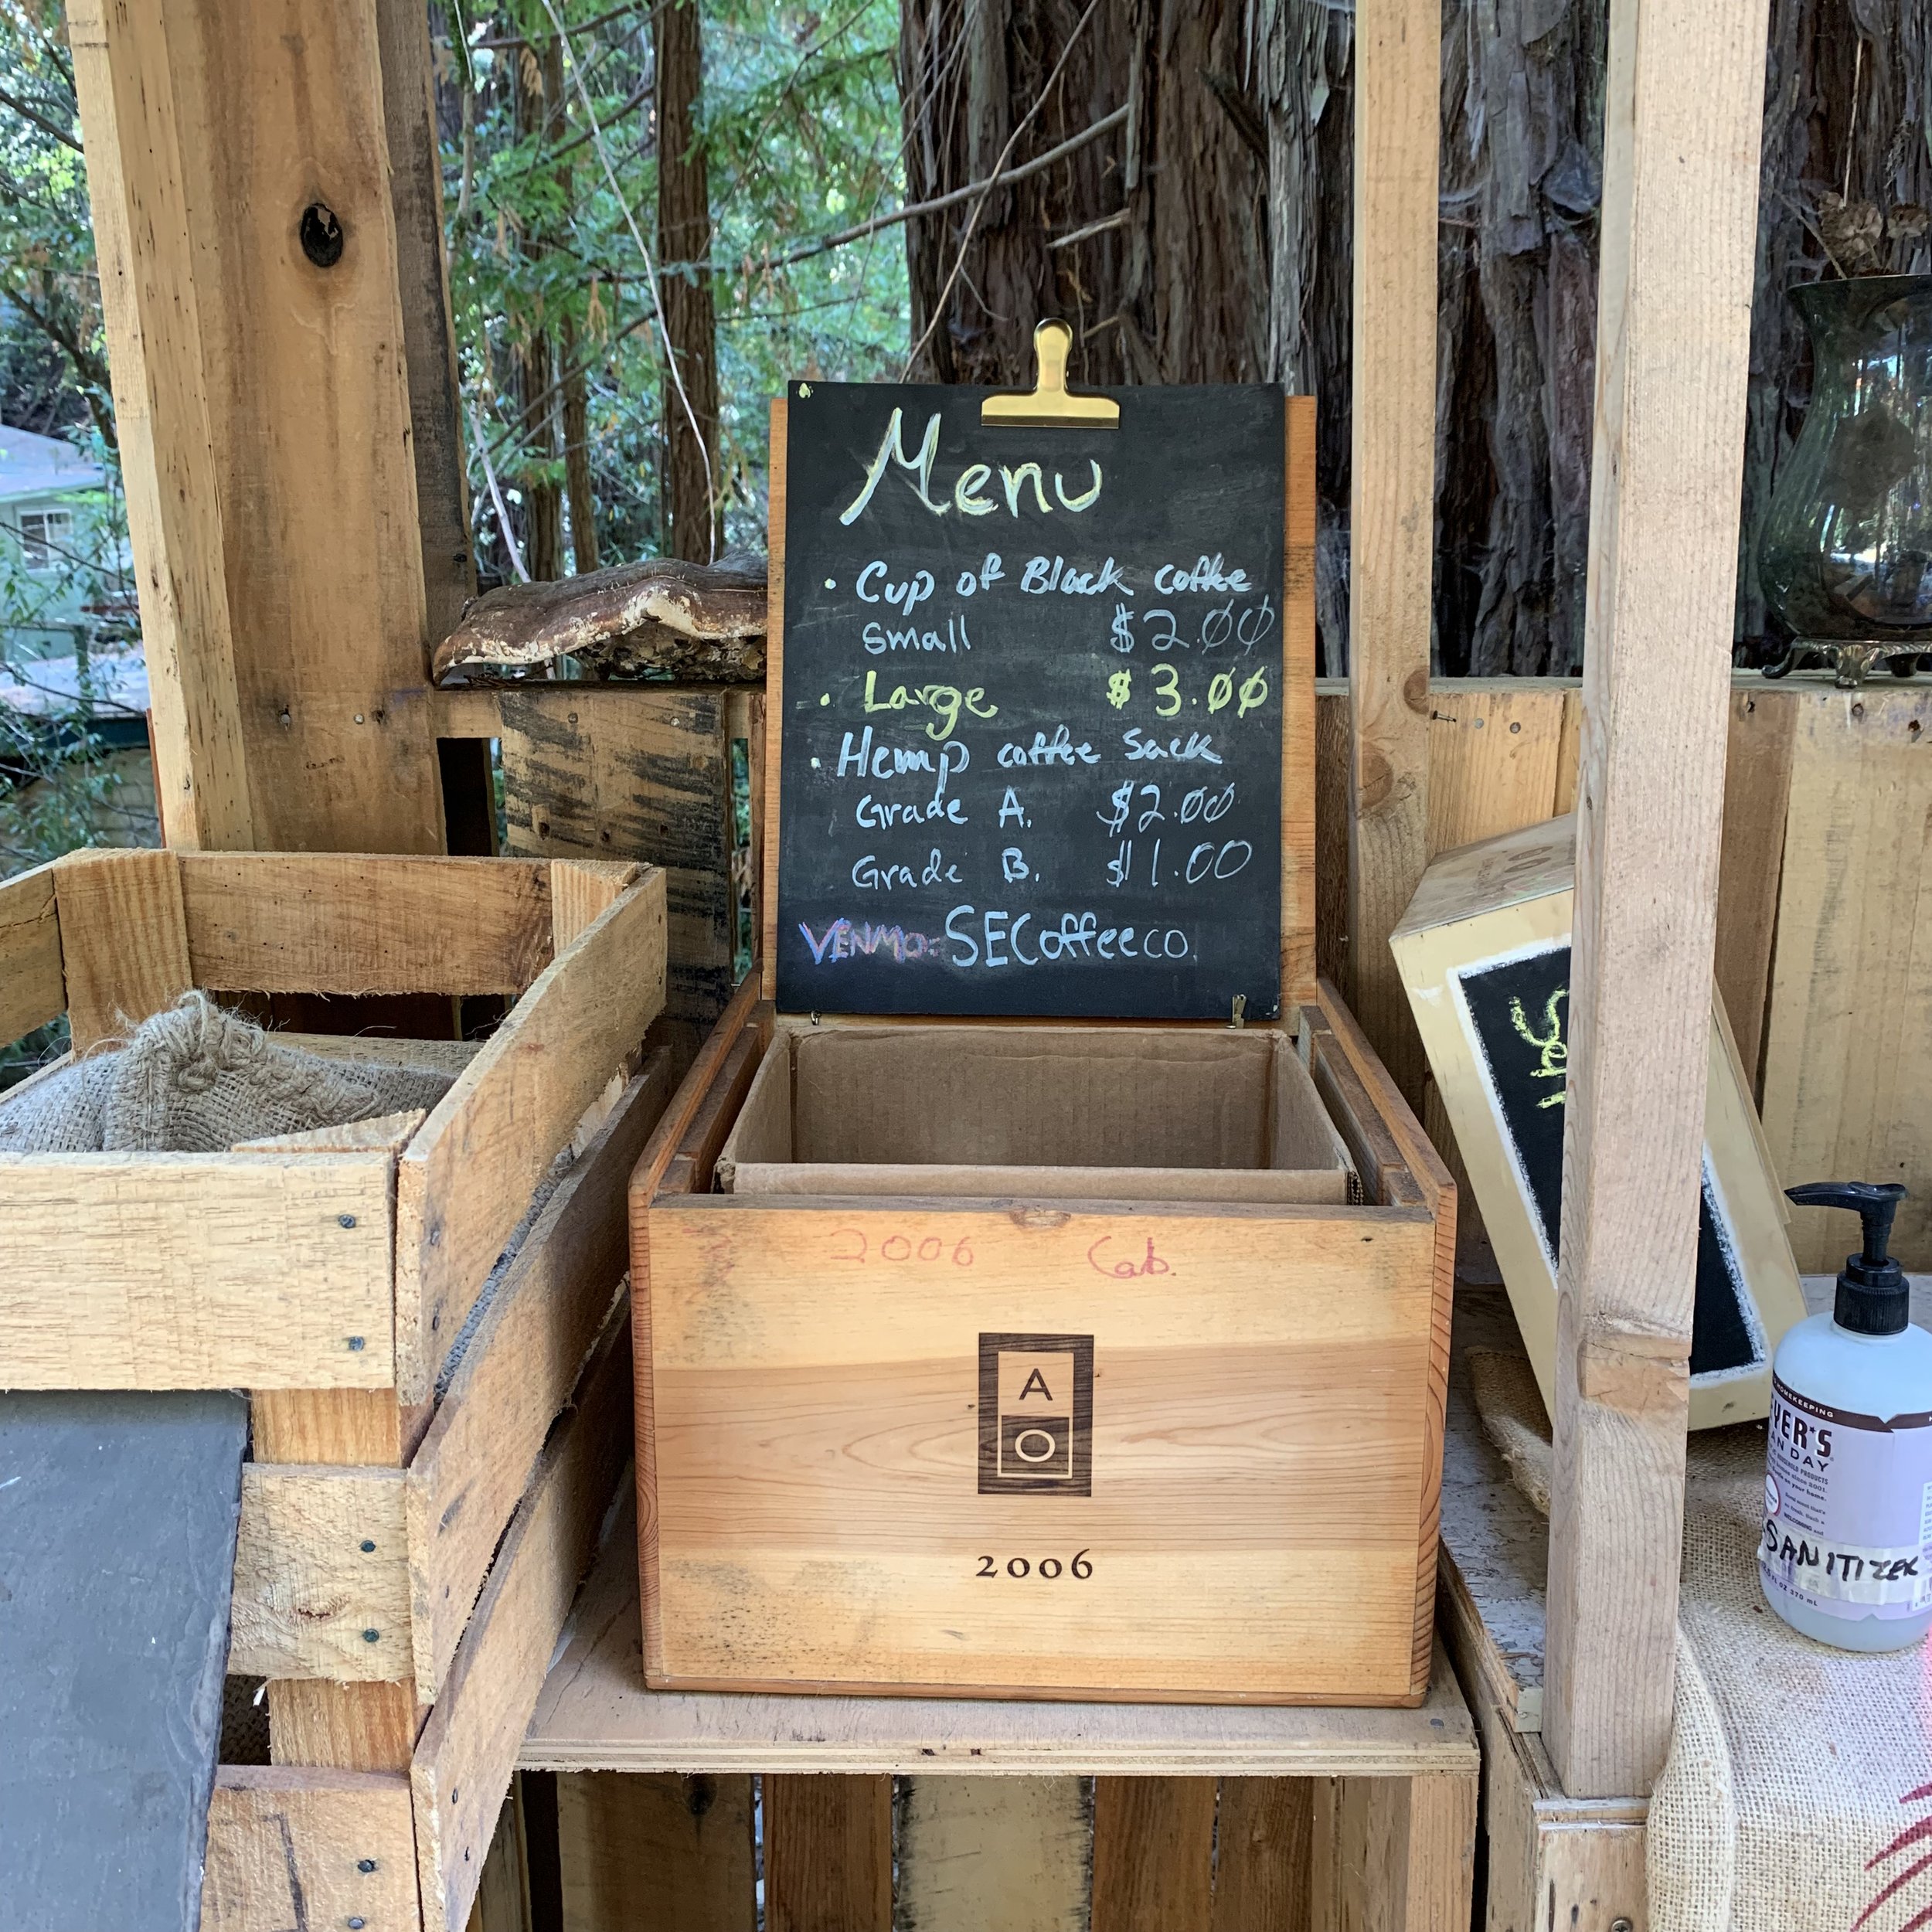 Menu
• Cup of Black coffee
Small $2.00
• Large $3.00
• Hemp coffee Sack
Grade A. $2.00
Grade B. $1.00
VENMO: SECoffeeco.
2006 Cab.
A
O
2006
YER'S
N DAY
SANITIZER